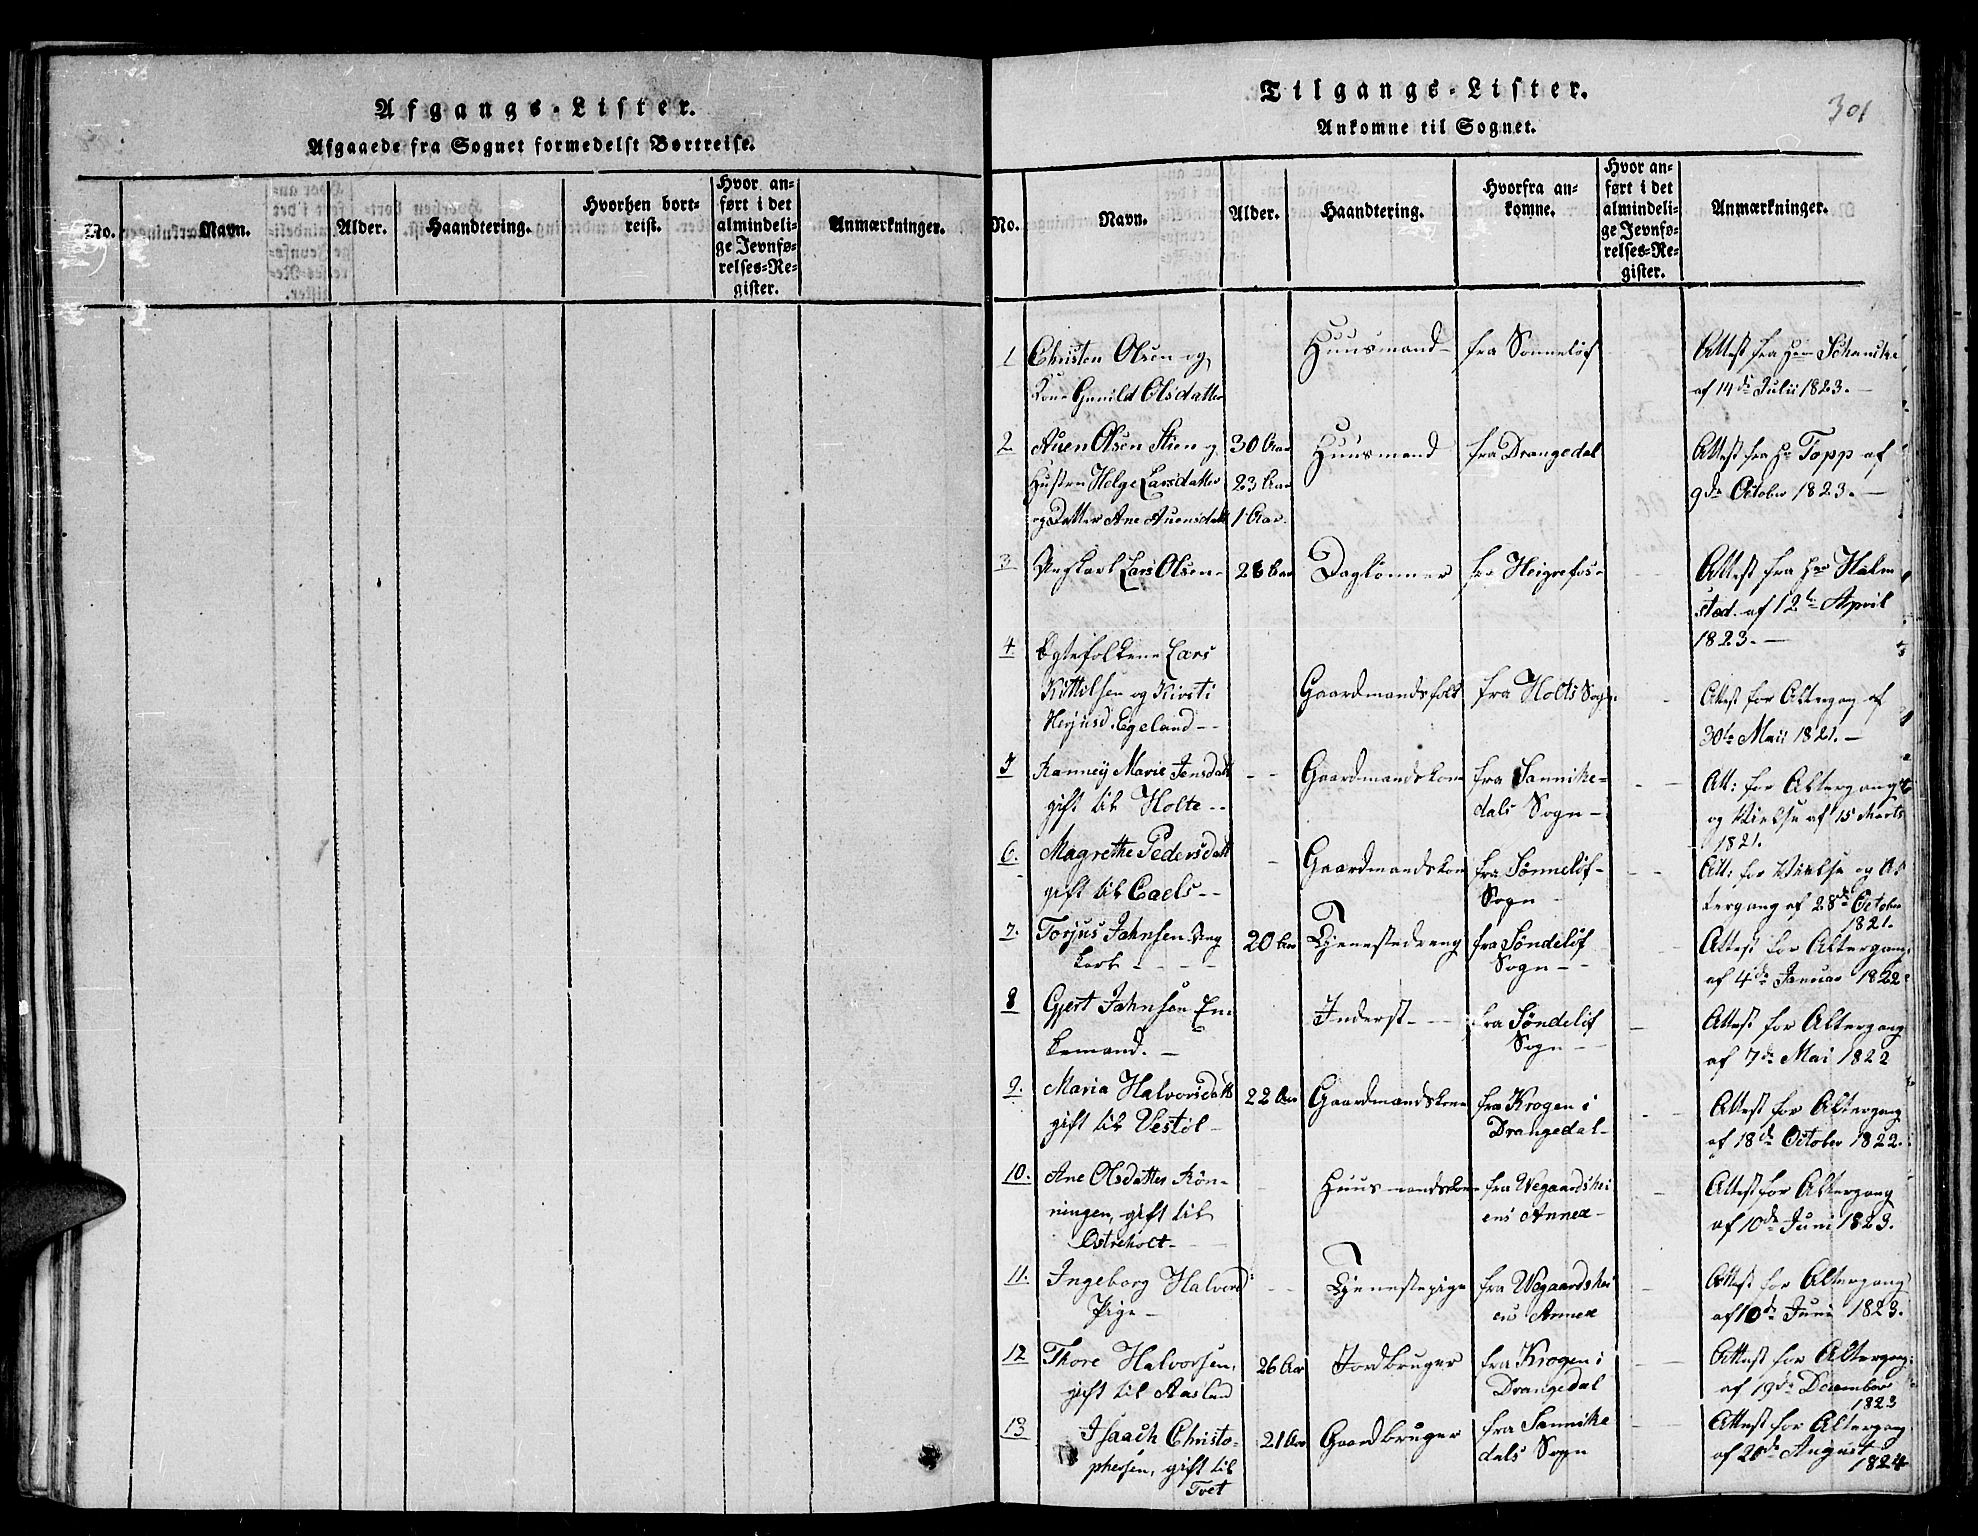 Afgangs-Lister.
Afgaaede fra Sognet formedelst Bortreise.
No.
Navn.
Alder.
Haandtering.
Hvorhen bort-
reist.
Hvor an-
ført i det
almindeli-
ge Jevnfø-
relses-Re-
gister.
Anmærkninger.
Tilgangs-Lister.
301
Ankomne til Sognet.
No.
Navn.
Alder.
Haandtering.
Hvorfra an-
komne.
Hvor an-
ført i det
almindeli-
ge Jevnfø-
relses-Re-
gister.
Anmærkninger.
1 Christen Olsen og
Kone Gunild Olsdatter
Huusmand - fra Sønneløf
Attest fra Hr Schanche
af 14de Julii 1823. -
2 Auen Olsen Stien og 30 Aar
Hustru Helge Larsdatter 23 Aar
og Datter Ane Auensdatt 1 Aar.
Huusmand fra Drangedal
Attest fra Hr Topp af
9de October 1823. -
3 Ungkarl Lars Olsen - 26 Aar Daglønner fra Heigrefos -
Attest fra Hr Halm
sted. af 12te April
1823. -
4. Egtefolkene Lars
Kittilsen og Kirsti
Herjusd. Egeland - -
Gaardmandsfolk fra Holts Sogn
Attest for Altergang af
30te Maii 1821. -
5 Ranneÿ Marie Jensdatt
gift til Holte - -
Gaardmandskone fra Sannike-
dals Sogn -
Att: for Altergang
og Vielse af 15 Marts
1821.
6. Magrethe Pedersdatt
gift til Eaels - -
Gaardmandskone fra Sønneløf-
Sogn -
Att: for Vielse og Al
tergang af 28de October
1821.
7. Torjus Jahnsen Ung
karl - - - - 20 Aar Tjenestedreng fra Søndeløf
Sogn - -
Attest for Altergang
af 4de Januar 1822
8 Gjert Jahnsen En
kemand. -
Inderst - - - fra Søndeløf
Sogn - -
Attest for Altergang
af 7de Mai 1822
9. Maria Halvorsdatt
gift til Vestøl - 22 Aar Gaardmandskone fra Krogen i
Drangedal -
Attest for Altergang
af 18de October 1822.
10. Ane Olsdatter Røn-
ningen, gift til
Østreholt -
Huusmandskone fra Wegaardshei
ens Annex -
Attest for Altergang
af 10de Juni 1823.
11. Ingeborg Halvorsd
Pige -
Tjenestepige fra Wegaardshei
ens Annex
Attest for Altergang
af 10de Juni 1823.
12 Thore Halvorsen,
gift til Aaslund 26 Aar Jordbruger fra Krogen i
Drangedal
Attest for Altergang
af 19de December
1823
13 Isaach Christo-
phersen, gift til
Tvet 21 Aar Gaardbruger fra Sannike
dals Sogn
Attest for Altergang
af 20de August
1824